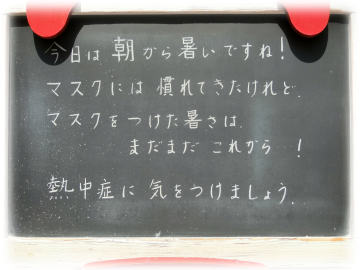 今日は 朝から暑いですね!
マスクには 慣れてきたけれど.
マスクをつけた暑さは.
まだまだ これから !
熱中症に 気をつけましょう.